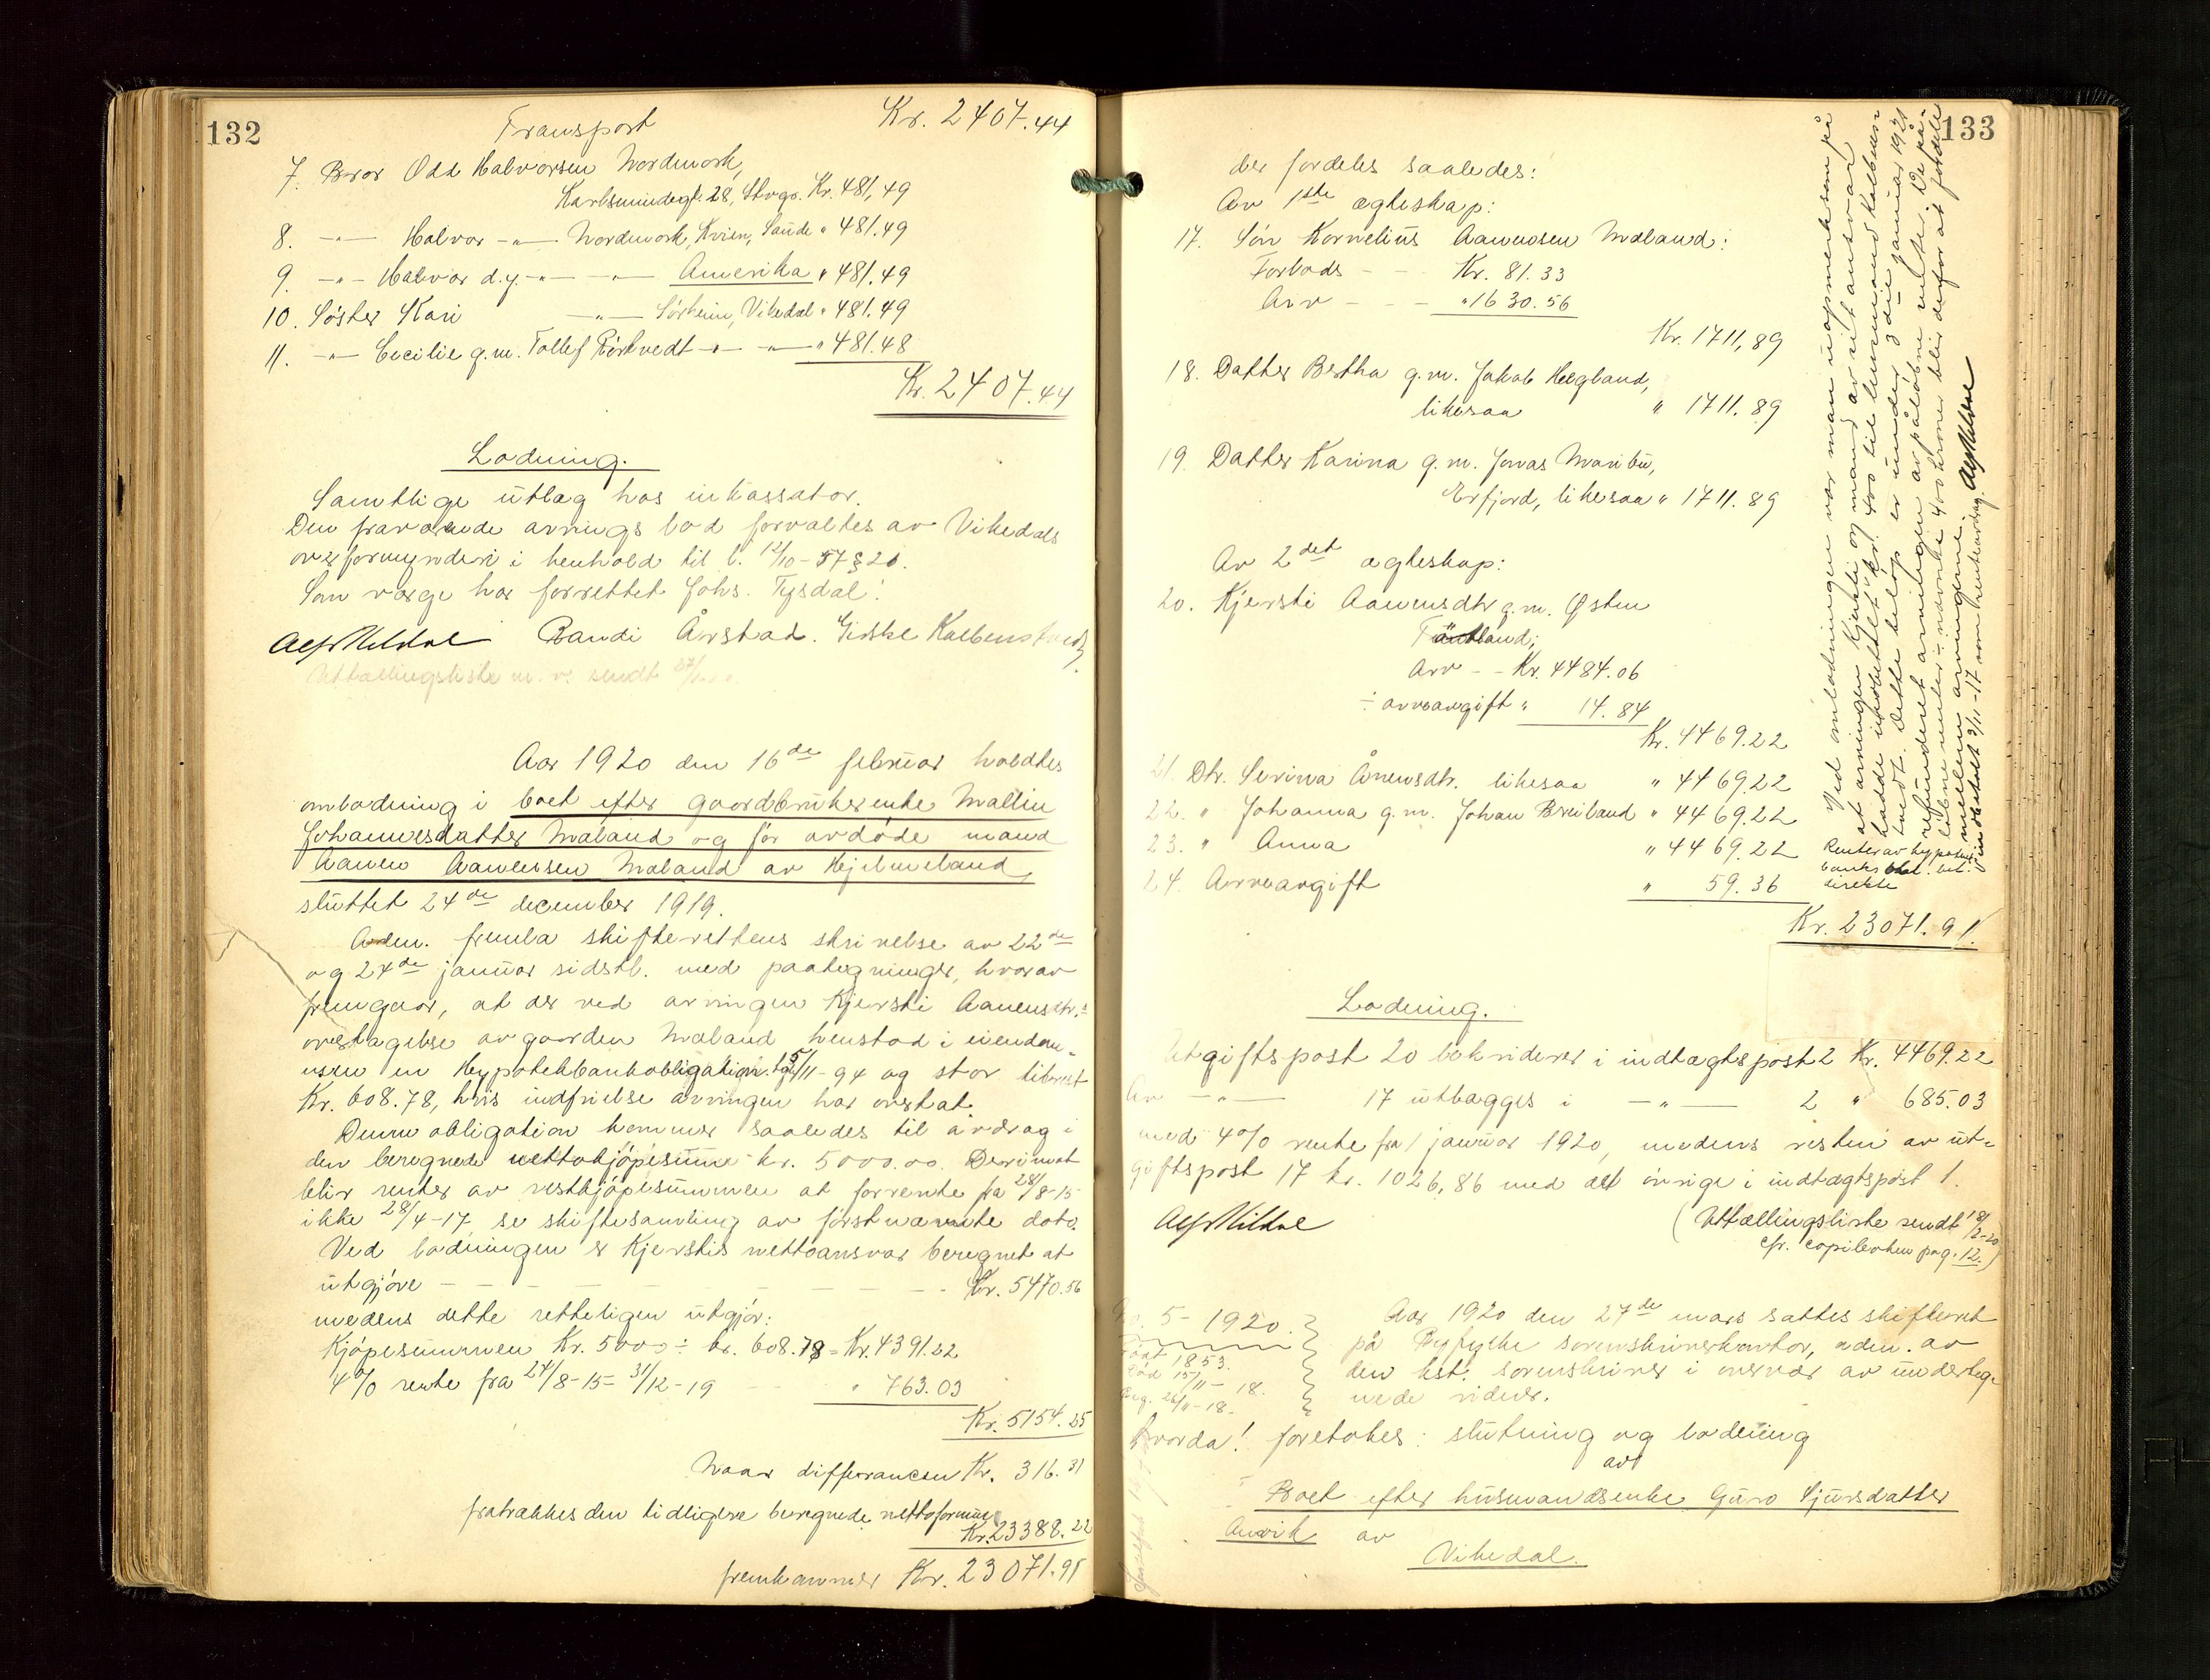 132
Transport Kr. 2407.44
7. Bror Odd Halvorsen Nordmork,
Karlsmindegt. 28, Stvgr. Kr. 481,49
8. -"- Halvor -"- Nordmork, Kvien, Saude " 481.49
9. -"- Halvor d.y. -"- -"- Amerika " 481.49
10. Søster Kari -"- Sørheim, Vikedal " 481.49
11. -"- Cecilie g.m. Tollef -"- -"- " 481.48
Kr. 2407.44
Lodning.
Samtlige utlæg hos inkassator.
Den fraværende arvings lod forvaltes av Vikedals
overformynderi i henhold til l. 12/10-57 § 20.
Som værge har forrettet Johs. Tysdal.
Randi Årstad. Gidske
Utfællingsliste m.v. sendt
Aar 1920 den 16de februar holdtes
omlodning i boet efter gaardbrukerenke Mallin
Johannesdatter Mæland og før avdøde mand
Aanen Aanensen Mæland av Hjelmeland,
sluttet 24de december 1919.
Adm. fremla skifterettens skrivelse av 22de
og 24de januar sidstl. med paategninger, hvorav
fremgaar, at der ved arvingen Kjersti Aanensdtr.s
overtagelse av gaarden Mæland henstod i eiendom-
men en Hypothekbankobligation tgl. 5/11-94 og stor tilrest
Kr. 608.78, hvis indfrielse arvingen har overtat.
Denne obligation kommer saaledes til avdrag i
den beregnede nettokjøpesum - kr. 5000.00. Derimot
blir renter av restkjøpesummen at forrente fra 28/8-15
ikke 28/4-17, se skiftesamling av førstnævnte dato.
Ved lodningen er Kjerstis nettoansvar beregnet at
utgjøre - - - - - - Kr. 5470.56
medens dette retteligen utgjør:
Kjøpesummen Kr. 5000 ÷ kr. 608.78 = Kr. 4391.22
4% rente fra 27/8-15 - 31/12-19 - " 763.03
Kr. 5154.25
Naar differancen Kr. 316.31
fratrækkes den tidligere beregnede nettoformue
Kr. 23388.22
fremkommer Kr. 23071.91
133
der fordeles saaledes:
Av 1ste egteskap:
17. Søn Kornelius Aanensen Mæland:
Forlods - - Kr. 81.33
Arv - - - " 1630.56
Kr. 1711,89
18. Datter Bertha g.m. Jakob Hegland,
likesaa " 1711.89
19. Datter Karina g.m. Jonas Maribu,
Erfjord, likesaa " 1711.89
Av 2det egteskap:
20. Kjersti Aanensdtr g.m. Østen
Arv - - Kr. 4484.06
÷ arveavgift " 14.84
Kr. 4469.22
21. Dtr. Serina Ånensdtr. likesaa " 4469.22
22. " Johanna g.m. Johan Breiland " 4469.22
23. " Anna " 4469.22
24. Arveavgift " 59.36
Kr. 23071.91.
Ved omlodningen var man uopmerksom på
at arvingen Kjersti og mand av sit ansvar
hadde indbetalt kr. 400 til
Dette beløp er under 3die januar 1921
refunderet arvingen av påløbne renter. De på-
løbne renter av nævnte 400 kroner blir derfor at fordele
mellem arvingerne.
indbetalt 3/11-17 som
Renter av hypothek-
banks obl. bet.
direkte
Lodning.
Utgiftspost 20 likviderer i indtægtspost 2 Kr. 4469.22
Av -"- 17 utlægges i -"- 2 " 685.03
med 4% rente fra 1 januar 1920, medens resten av ut-
giftspost 17 kr. 1026,86 med det øvrige i indtægtspost 1.
(Utfællingsliste sendt 18/2-20
cfr. copiboken pag. 12.)
No. 5 - 1920.
Født 1853.
Død 15/11-18.
Beg. 26/11-18.
Aar 1920 den 27de mars sattes skifteret
på Ryfylke sorenskriverkontor, adm. av
den kst. sorenskriver i overvær av underteg-
nede vidner.
Hvorda! foretokes: slutning og lodning
av
Boet efter husmandsenke Guro Sjursdatter
Anvik av
Vikedal.